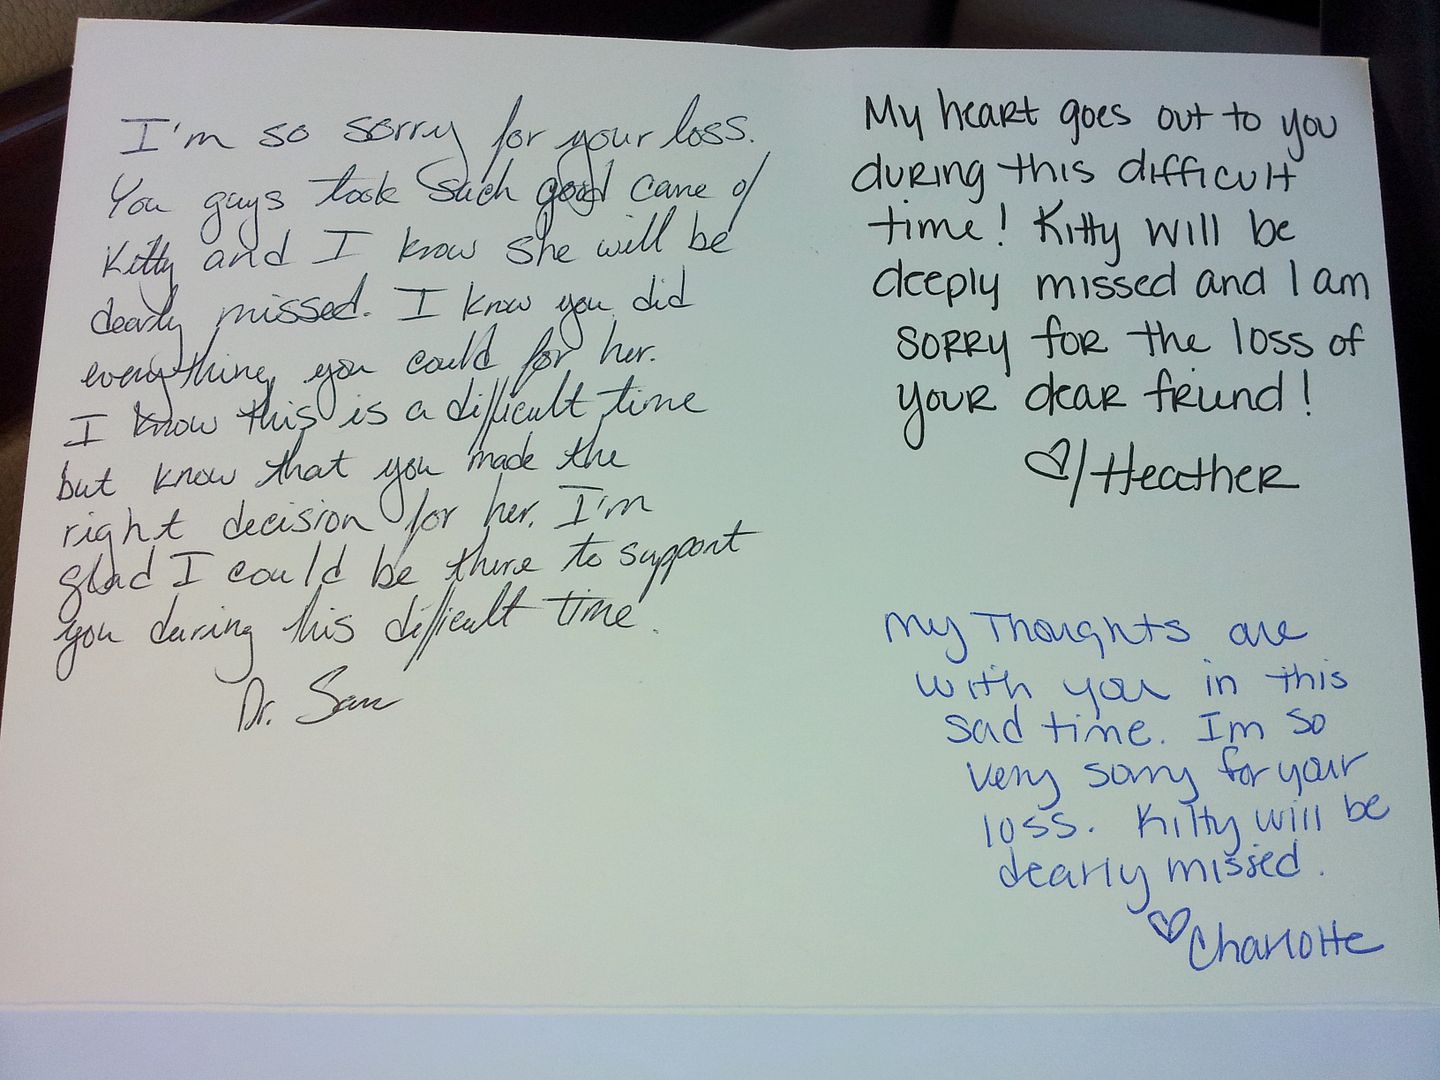 I'm so sorry for your loss.
You guys took such good care of
Kitty and I know she will be
dearly missed. I know you did
everything you could for her.
I know this is a difficult time
but know that you made the
right decision for her. I'm
glad I could be there to support
you during this difficult time.
Dr. Sam
My heart goes out to you
during this difficult
time! Kitty will be
deeply missed and I am
sorry for the loss of
your dear friend!
♡/Heather
My Thoughts are
with you in this
sad time. Im so
very sorry for your
loss. Kitty will be
dearly missed.
♡Charlotte